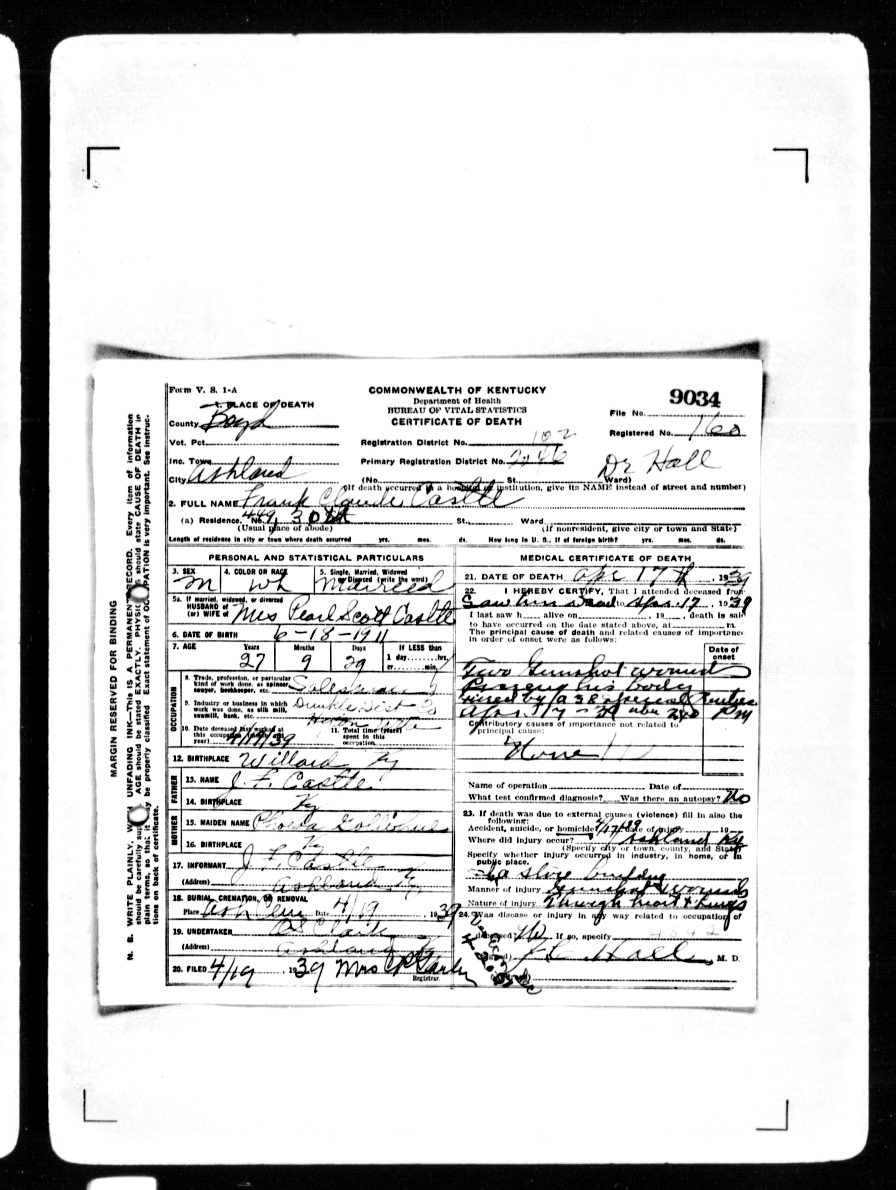 Form V. S. 1-A
COMMONWEALTH OF KENTUCKY
Department of Health
BUREAU OF VITAL STATISTICS
CERTIFICATE OF DEATH
9034
File No.
Registered No. 160
1. PLACE OF DEATH
County Boyd
Vot. Pct.
Registration District No. 102
Inc. Town
Primary Registration District No. 2246
Dr Hall
City Ashland
(No. St. Ward)
(If death occurred in a hospital or institution, give its NAME instead of street and number)
2. FULL NAME Frank Claude Castle
(a) Residence. No. 449, 30th St. Ward
(Usual place of abode) (If nonresident, give city or town and State)
Length of residence in city or town where death occurred yrs. mos. ds. How long in U. S., if of foreign birth? yrs. mos. ds.
PERSONAL AND STATISTICAL PARTICULARS
3. SEX 4. COLOR OR RACE 5. Single, Married, Widowed
or Divorced (write the word)
M Wh Married
5a. If married, widowed, or divorced
HUSBAND of
(or) WIFE of Mrs Pearl Scott Castle
6. DATE OF BIRTH 6-18-1911
7. AGE Years Months Days If LESS than
1 day, hrs.
or min.
27 9 29
OCCUPATION
8. Trade, profession, or particular
kind of work done, as spinner,
sawyer, bookkeeper, etc. Salesman
9. Industry or business in which
work was done, as silk mill,
sawmill, bank, etc.
10. Date deceased last worked at
this occupation (month and
year) 4/17/39
11. Total time (years)
spent in this
occupation
12. BIRTHPLACE Willard Ky
FATHER
13. NAME J. F. Castle
14. BIRTHPLACE Ky
MOTHER
15. MAIDEN NAME
16. BIRTHPLACE Ky
17. INFORMANT J F Castle
(Address) Ashland Ky
18. BURIAL, CREMATION, OR REMOVAL
Place Ash Cem Date 4/19 1939
19. UNDERTAKER
(Address) Ashland Ky
20. FILED 4/19 1939 Mrs
Registrar.
MEDICAL CERTIFICATE OF DEATH
21. DATE OF DEATH Apr 17th, 1939
22. I HEREBY CERTIFY, That I attended deceased from
Saw him dead to Apr. 17, 1939
I last saw h alive on , 19 , death is said
to have occurred on the date stated above, at m.
The principal cause of death and related causes of importance
in order of onset were as follows:
Date of
onset
Two Gunshot wounds
his body
fired by a 38 special
Apr. 17-39 2:40 P m
Contributory causes of importance not related to
principal cause:
None
Name of operation Date of
What test confirmed diagnosis? Was there an autopsy? No
23. If death was due to external causes (violence) fill in also the
following:
Accident, suicide, or homicide? 4/17/39 Date of injury 19
Where did injury occur? Ashland Ky
(Specify city or town, county, and State)
Specify whether injury occurred in industry, in home, or in
public place.
In a store building
Manner of injury Gunshot wounds
Nature of injury Through heart & lungs
24. Was disease or injury in any way related to occupation of
deceased? No If so, specify
(Signed) Hall M. D.
MARGIN RESERVED FOR BINDING
N. B. WRITE PLAINLY, WITH UNFADING INK—This is A PERMANENT RECORD. Every item of information
should be carefully supplied. AGE should be stated EXACTLY. PHYSICIANS should state CAUSE OF DEATH in
plain terms, so that it may be properly classified. Exact statement of OCCUPATION is very important. See instruc-
tions on back of certificate.